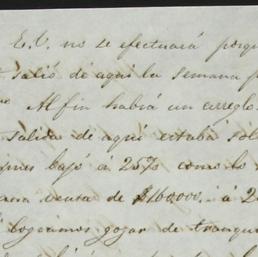 E.V. no se efectuará porqu
salió de aquí la semana p
Al fin habrá un arreglo
salida de aquí estaba sob
bajó á 25% como lo
venta de $160000. á 2
gozar de tranqu